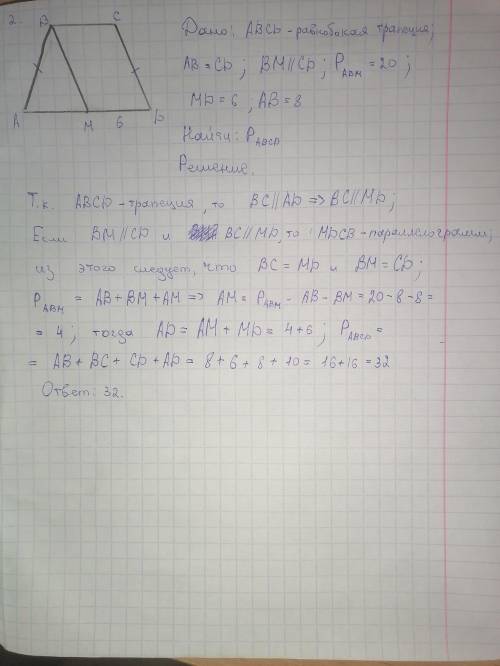 2.
B C
A M 6 D
Дано: ABCD - равнобокая трапеция;
AB = CD; BM || CD; P_ABM = 20;
MD = 6, AB = 8
Найти: P_ABCD
Решение.
Т.к. ABCD - трапеция, то BC || AD => BC || MD;
Если BM || CD и BC || MD, то MDCB - параллелограмм;
из этого следует, что BC = MD и BM = CD;
P_ABM = AB + BM + AM => AM = P_ABM - AB - BM = 20 - 8 - 8 =
= 4; тогда AD = AM + MD = 4 + 6; P_ABCD =
= AB + BC + CD + AD = 8 + 6 + 8 + 10 = 16 + 16 = 32
Ответ: 32.